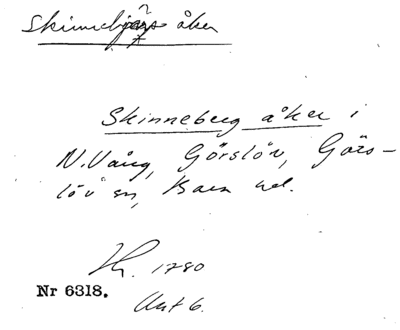 åker
Skinneberg åker i
N. Vång, Görslöv, Görs-
löv sn, Bara hd.
1780
Nr 6318.
Akt 6.